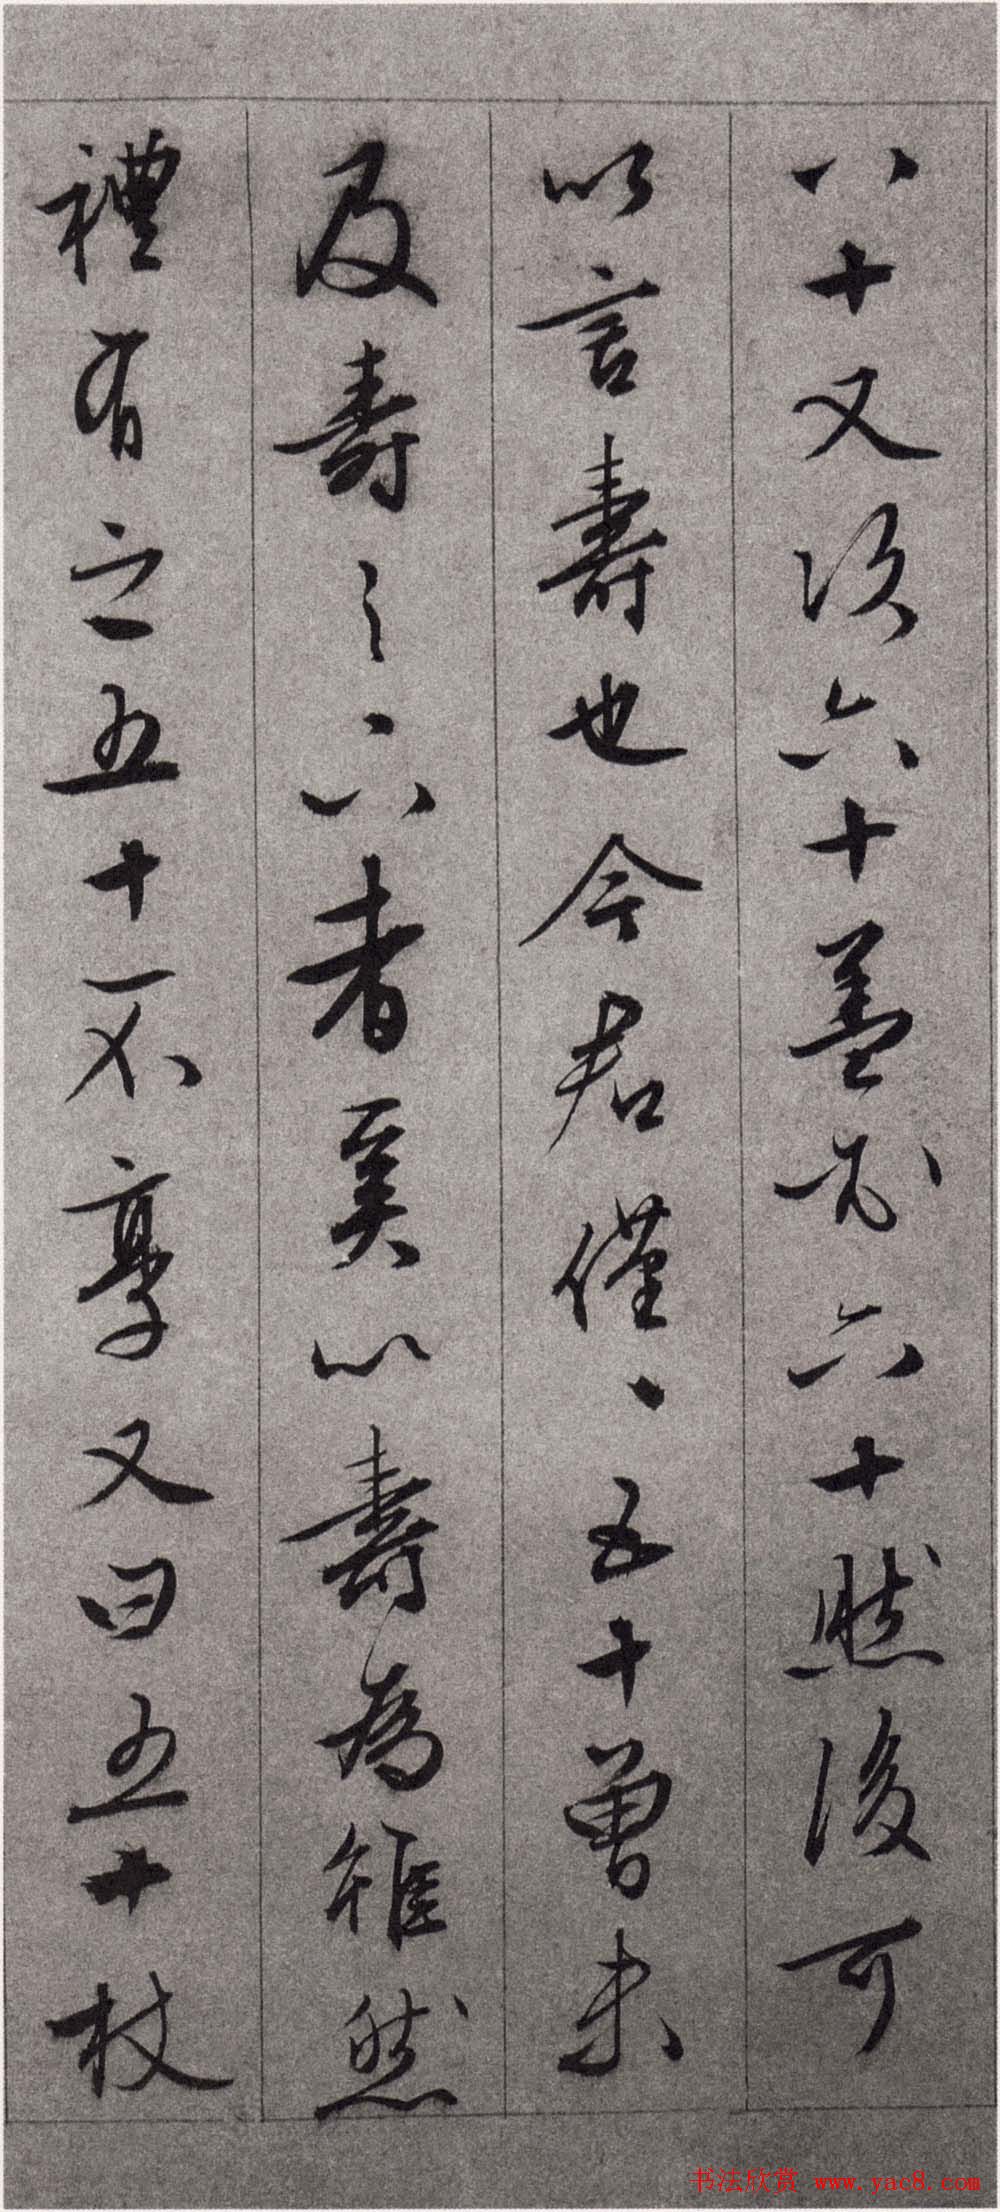 八十又次六十蓋必六十然後可
以言壽也今君僅〻五十曾未
及壽之下者奚以壽為雖然
禮有之五十不享又曰五十杖
书法欣赏 www.yac8.com